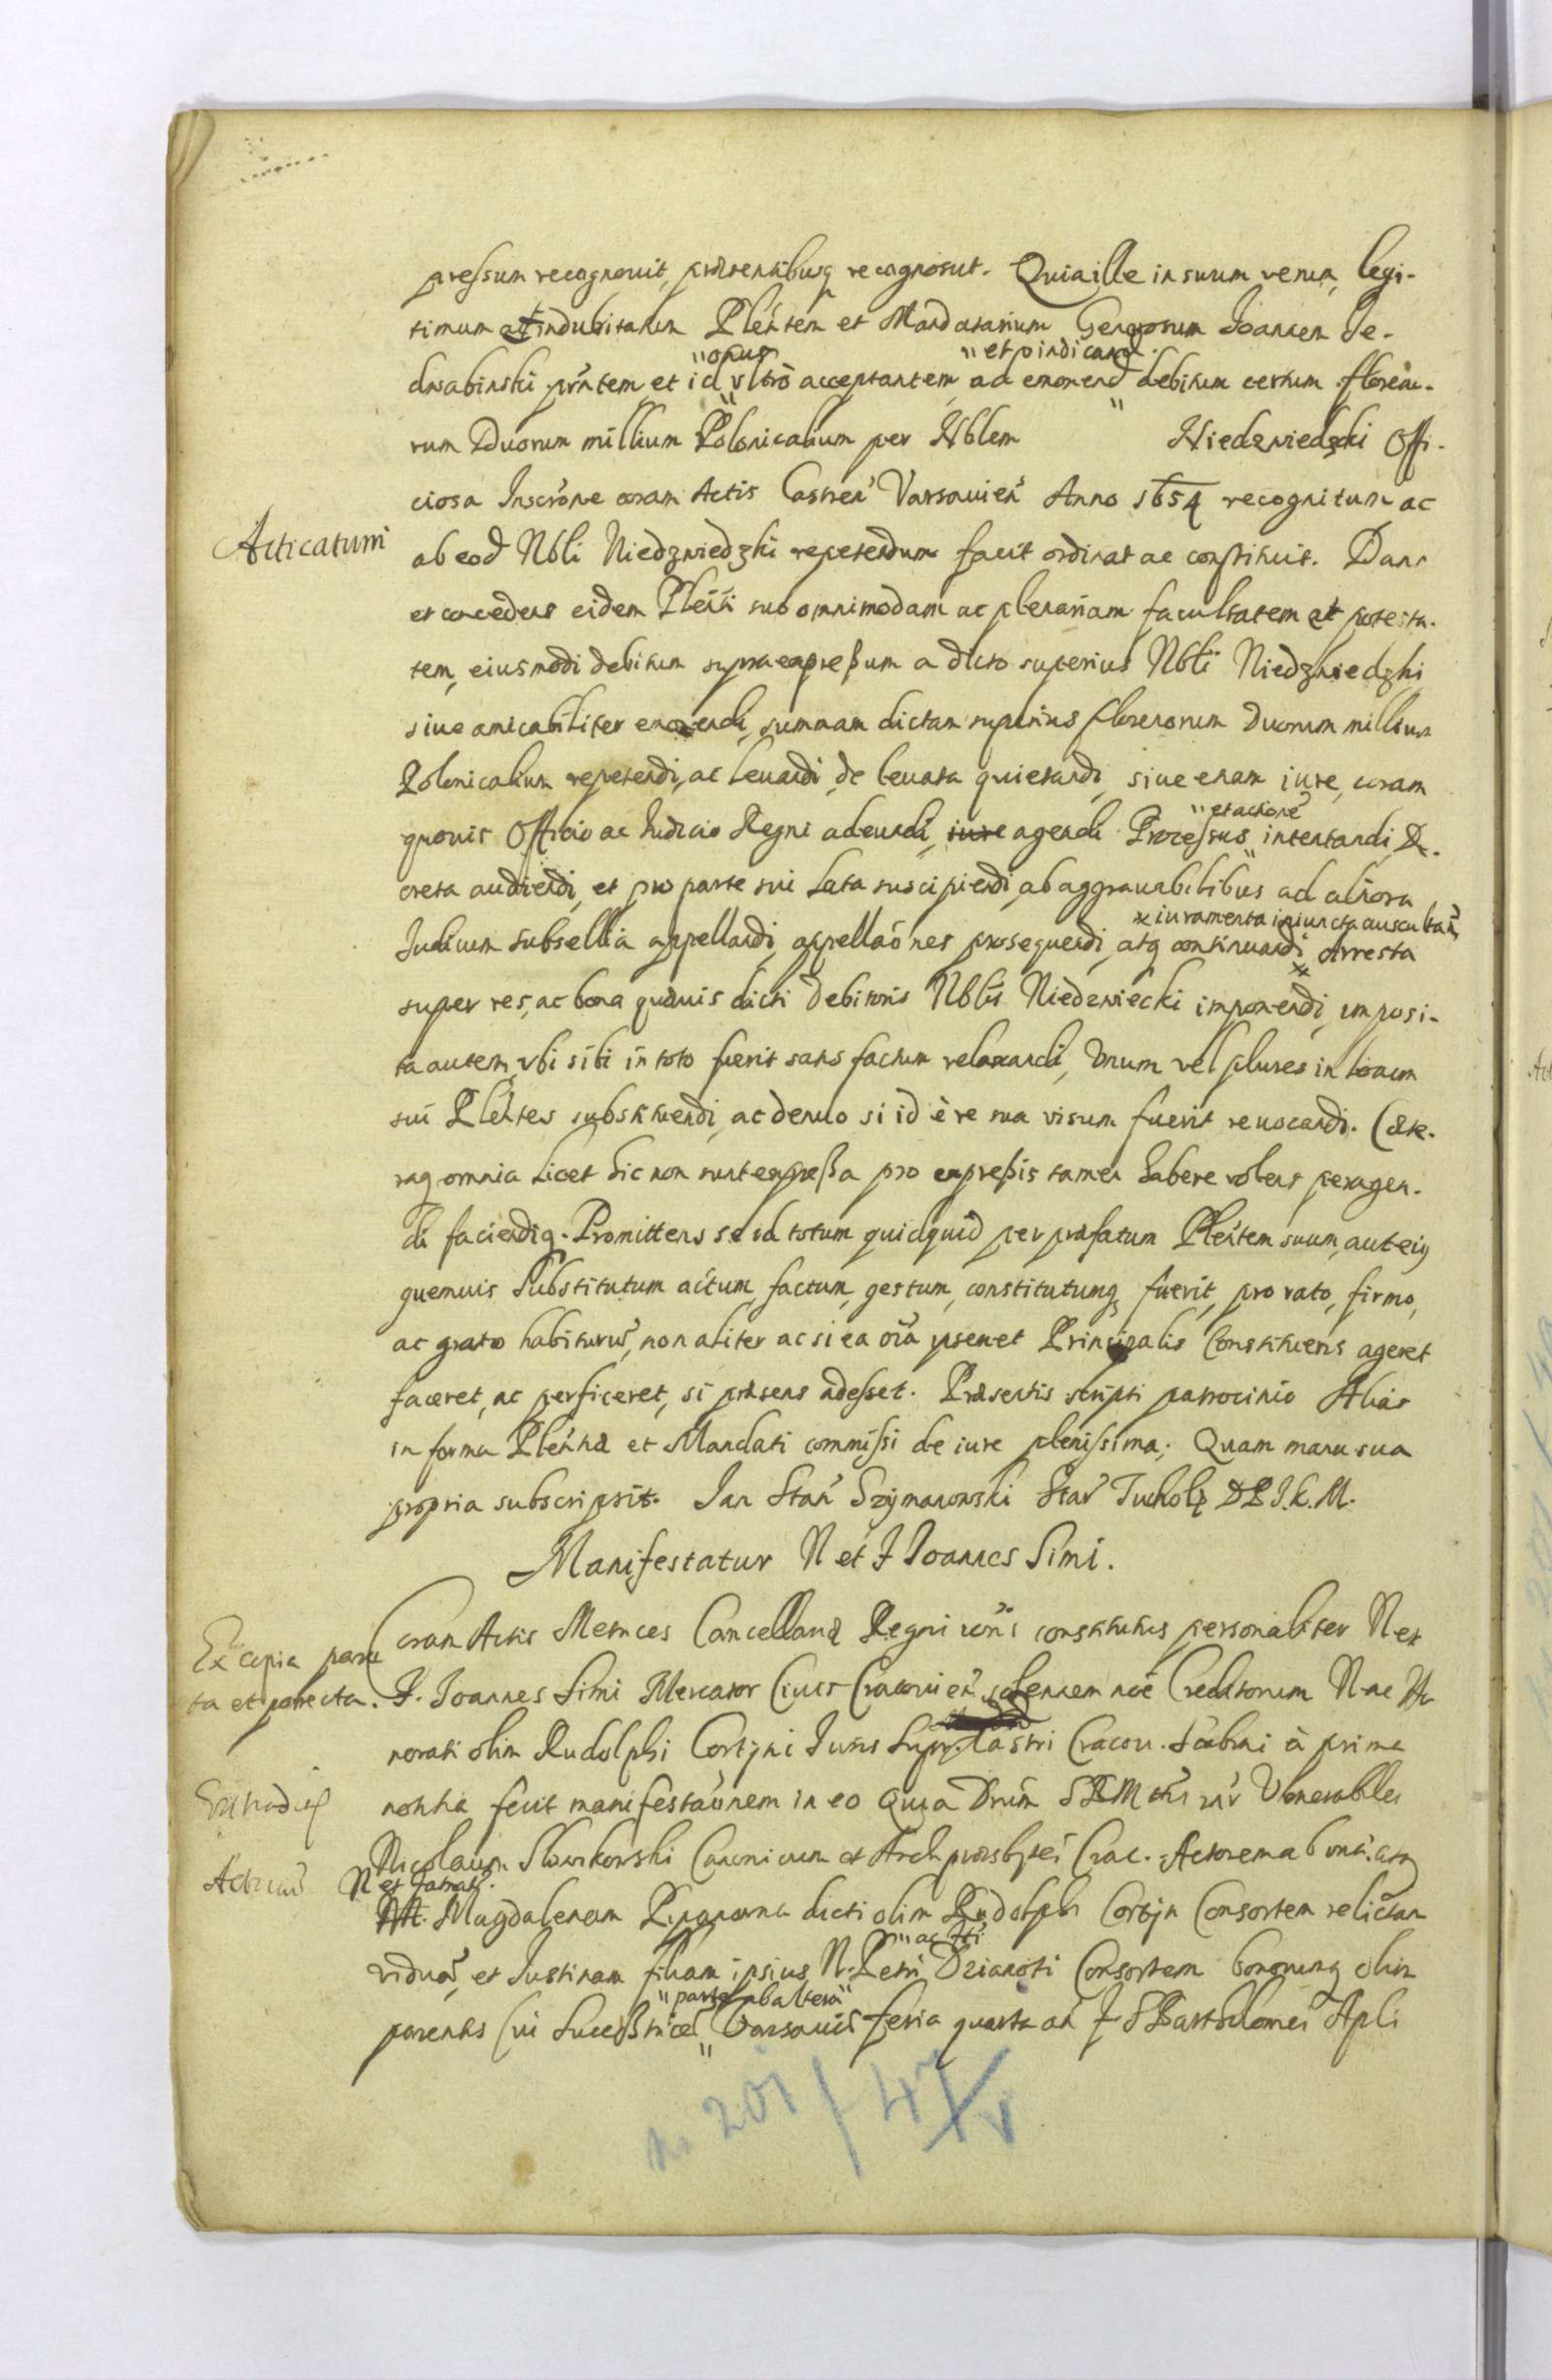 pressum recognovit, praesentibusq recognoscit. Quia ille in suum verum, legi-
timum et indubitatum Pleńtem et Mandatarium Generosum Joannem Je-
"onus "et vindicand.
dwabinski prńtem, et id ultrò acceptantem, ad emonend debitum certum florenu-
rum Duorum millium Polonicalium per Nblem Niedzwiedzki Offi-
ciosa Inscrone coram Actis Castren Varsavien Anno 1654 recognitum ac
Acticatum
ab eod Nbli Niedzwiedzki repetendum facit ordinat ac constituit. Dans
et concedens eidem Pleńti suo omnimodam ac plenariam facultatem et potesta-
tem, eiusmodi debitum supraexpressum a dicto superius Nbli Niedzwiedzki
siue amicabiliter emonendi, summam dictam superius florenorum Duorum millium
Polonicalium repetendi, ac leuandi, de leuata quietandi, siue etiam iure, coram
"et actione
quouis Officio ac Iudicio Regni adeundi, iure agendi Processus intentandi, De-
creta audiendi, et pro parte sui lata suscipiendi, ab aggrauabilibus ad altiora
x iuramenta iniuncta auscultań
Iudicum subsellia appellandi, appellaones prosequendi, atq continuandi Arresta
super res, ac bona quaeuis dicti debitoris Nblis Niedzwiecki imponendi, imposi-
ta autem, vbi sibi in toto fuerit satisfactum relaxandi, Vnum vel plures in locum
sui Pleńtes substituendi, ac denuo si id è re sua visum fuerit reuocandi. Caete-
raq omnia licet hic non sunt expressa pro expressis tamen habere volens peragen-
di faciendiq. Promittens se id totum quidquid per praefatum Pleńtem suum, aut eiq
quemuis Substitutum actum, factum, gestum, constitutumq fuerit, pro rato, firmo,
ac grato habiturus, non aliter ac si ea oia ipsemet Principalis Constituens ageret
faceret, ac perficeret, si praesens adesset. Praesentis scripti patrocinio Alias
in forma Pleńtiae et Mandati commissi de iure plenissima. Quam manu sua
propria subscripsit. Jan Stań Szymanowski Star Tuchol DP J.K.M.
Manifestatur N et F Joannes Simi.
Ex copia porre
Coram Actis Metrices Cancellariae Regni coń constitutus personaliter N et
cta et porrecta.
F. Joannes Simi Mercator Ciuis Cracouień solennem noe Creditorum N-ne Ho
norati olim Rudolphi Cortyni Iuris Supr. Castri Cracou. Scabini à prima
Extraditę
notitia fecit manifestaonem in eo Quia Dnim Venerabiles
Nicolaum Slowikowski Canonicum et Archpraesbyteri Crac. Actorem ab vna. atq
N et Famat.
Magdalenam Pipanowna dicti olim Rudolphi Cortyn Consortem relictam
" ac Fti
viduam, et Iustinam filiam ipsius N. Petri Dzianoti Consortem bonorumq olim
"parte ab altera"
parentis sui Successtrices Varsauiae feria quarta an F S Bartholomei Apli
201/47 v